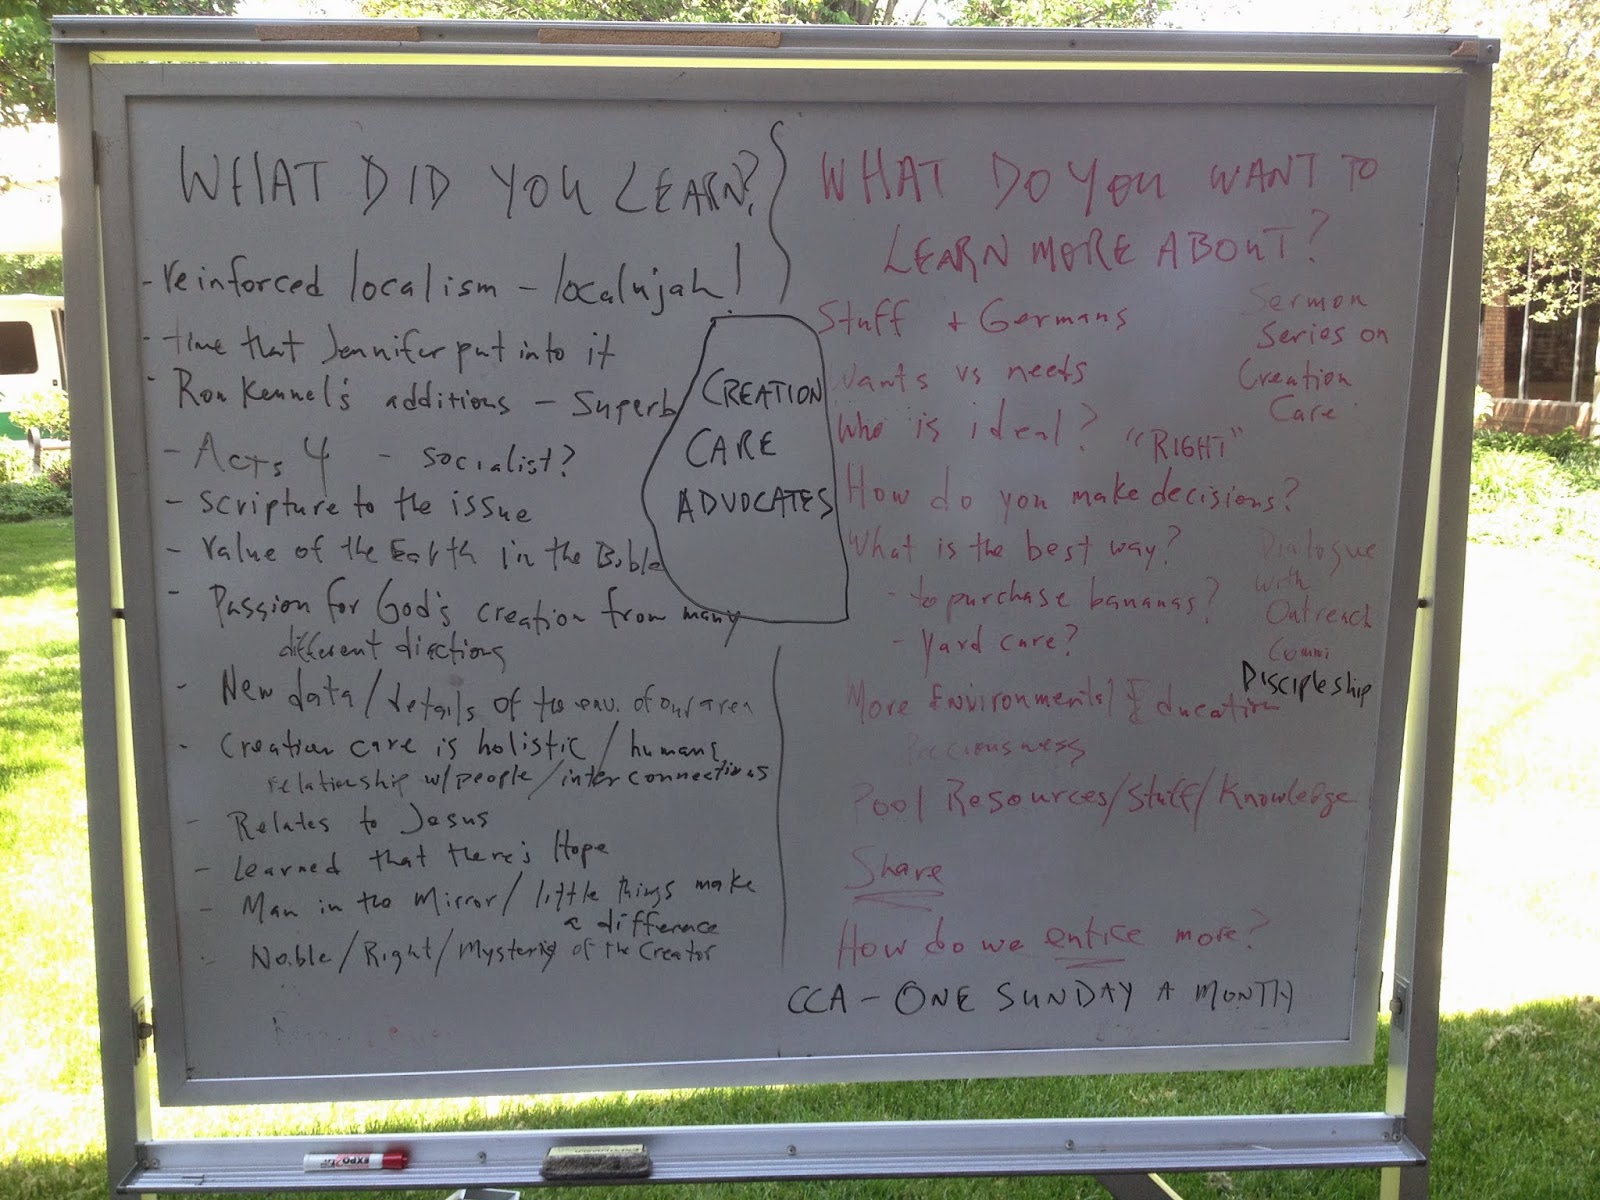 WHAT DID YOU LEARN?
- reinforced localism - localujah!
- time that Jennifer put into it
- Ron Kennel's additions - Superb
- Acts 4 - socialist?
- scripture to the issue
- value of the Earth in the Bible
- Passion for God's creation from many
different directions
- New data/details of the env. of our area
- Creation care is holistic/humans,
relationship w/people/interconnections
- Relates to Jesus
- Learned that there's Hope
- Man in the Mirror/little things make
a difference
- Noble/Right/Mystery of the Creator
CREATION
CARE
ADVOCATES
WHAT DO YOU WANT TO
LEARN MORE ABOUT?
Stuff + Germans
wants vs needs
Who is ideal? "RIGHT"
How do you make decisions?
What is the best way?
- to purchase bananas?
- yard care?
More Environmental Education
Preciousness
Pool Resources/Stuff/Knowledge
Share
How do we entice more?
CCA - ONE SUNDAY A MONTH
Sermon
Series on
Creation
Care
Dialogue
with
Outreach
Comm
Discipleship
EXPO